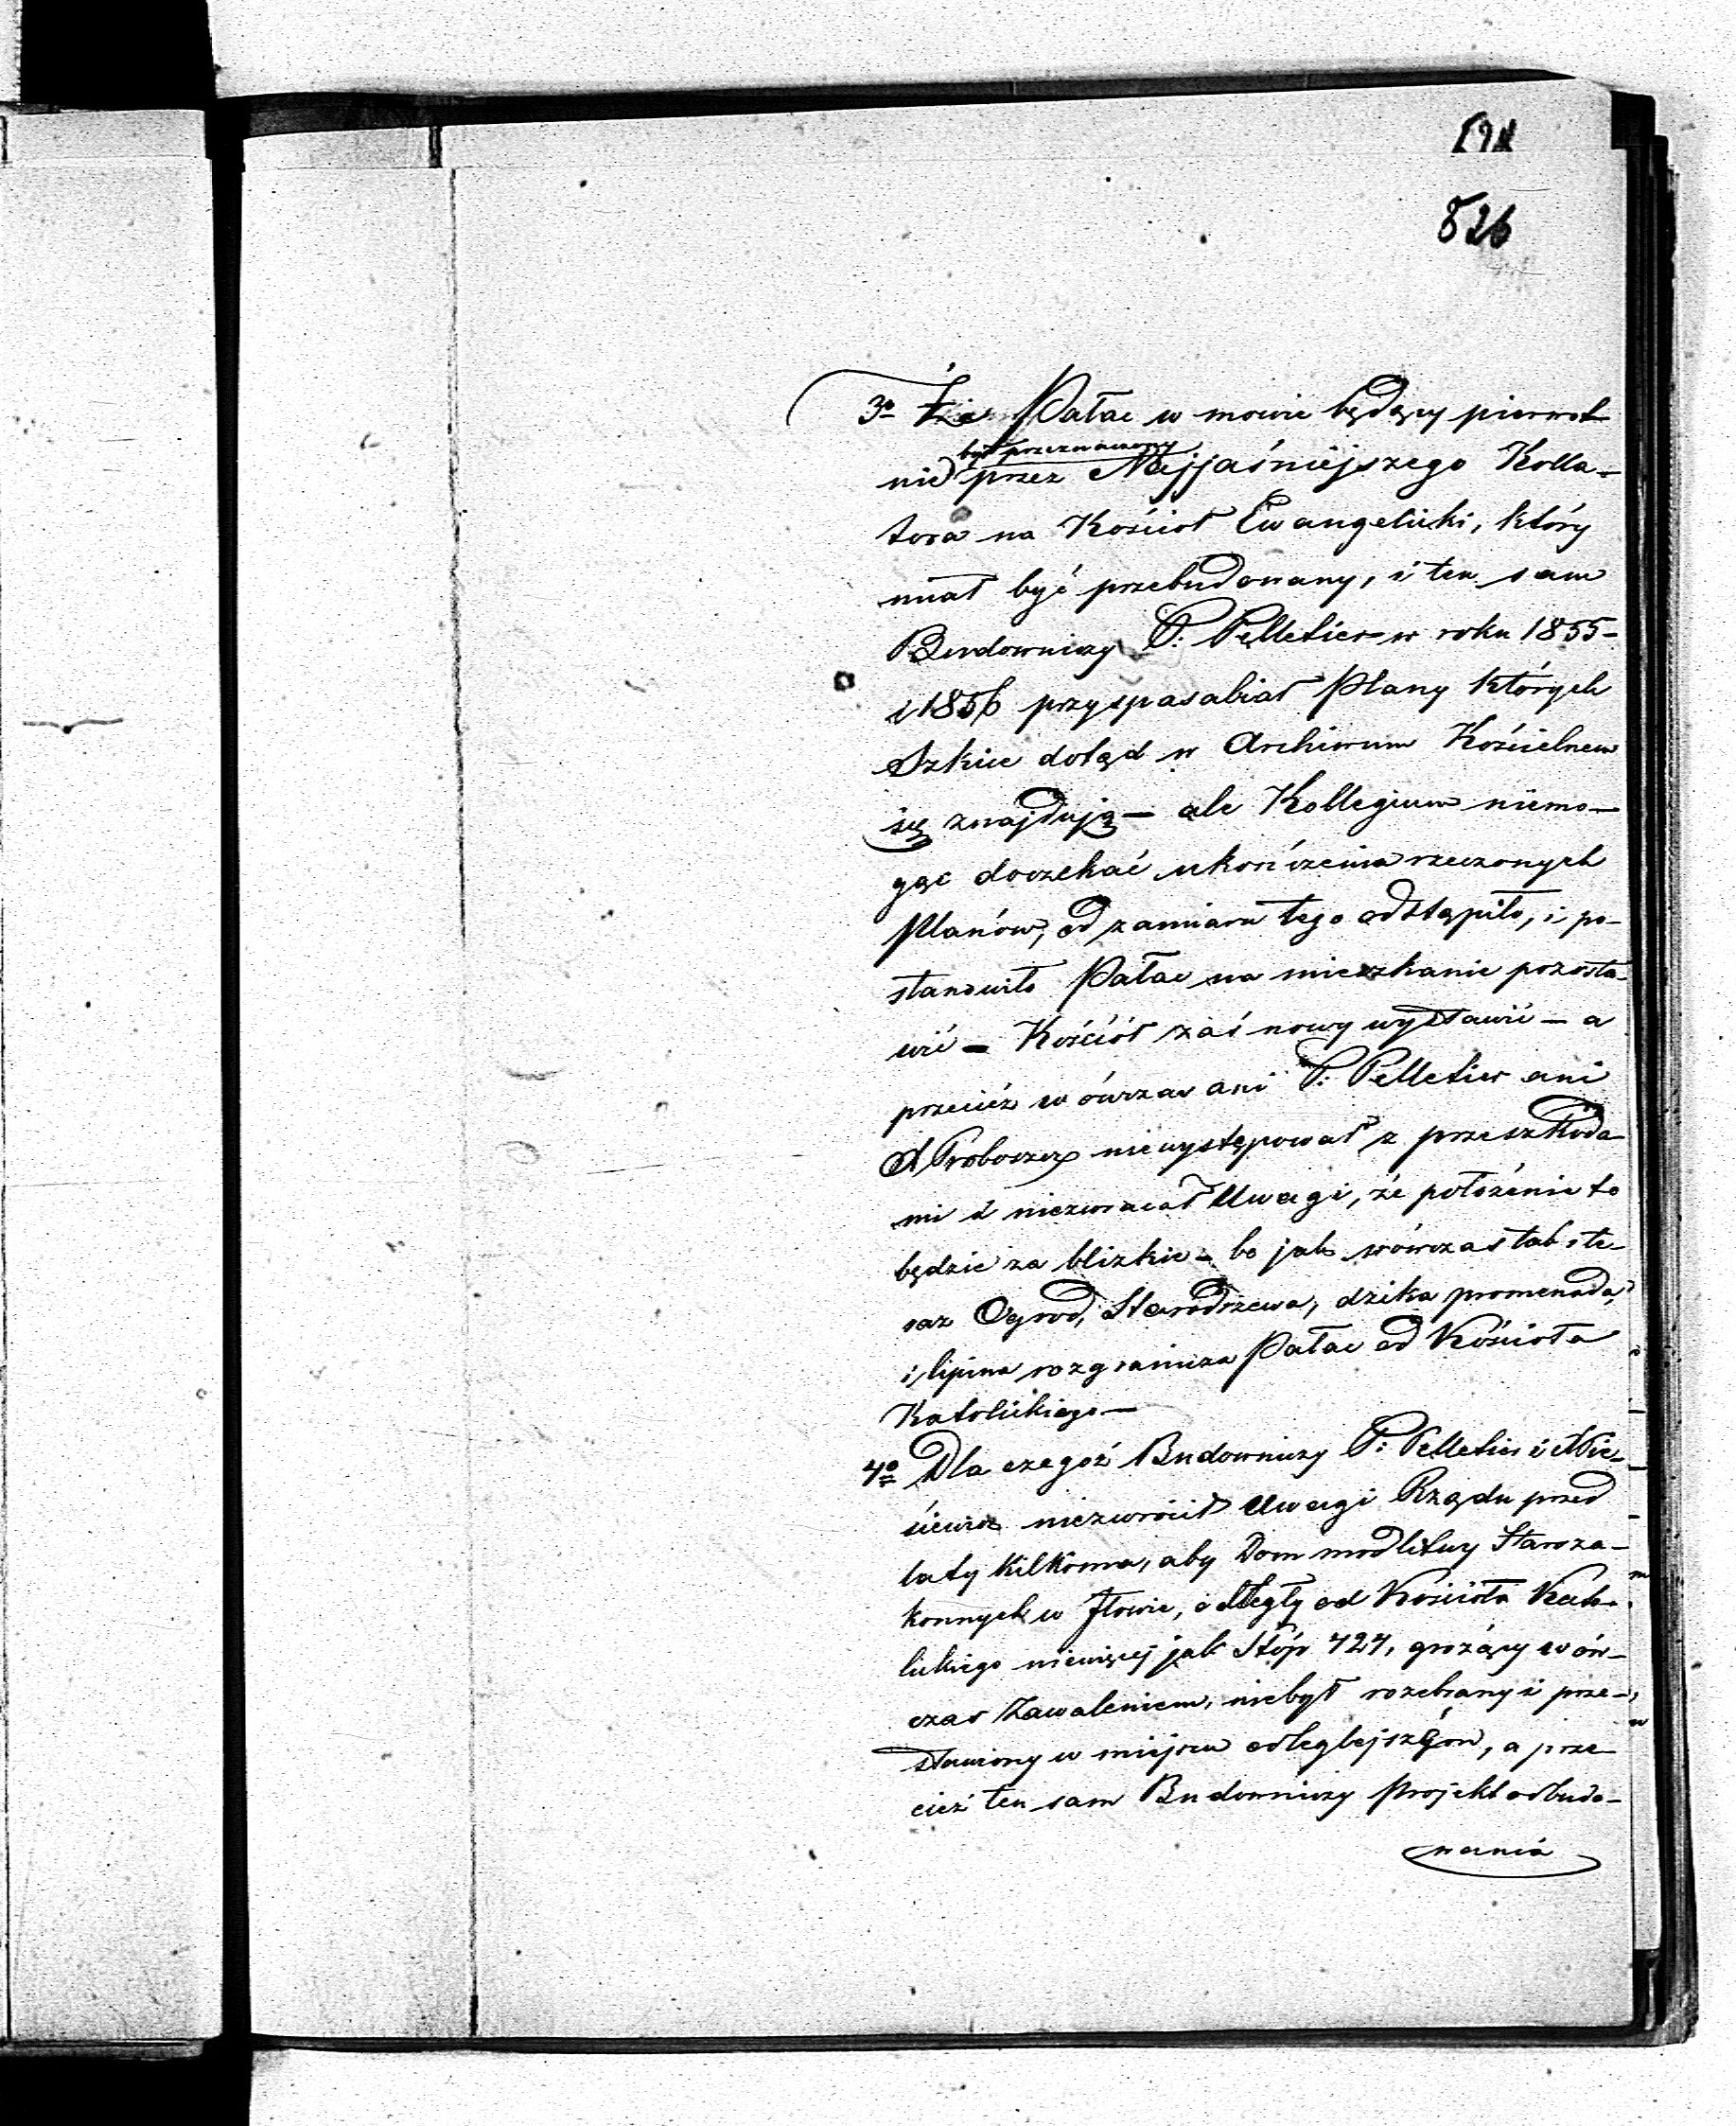 826
3o Że Pałac w mowie będący pierwot
był przeznaczony
nie przez Najjaśniejszego Kolla-
tora na Kościoł Ewangelicki, który
miał być przebudowany, i ten sam
Budowniczy P: Pelletier w roku 1855-
i 1856 przyspasabiał Plany których
Szkice dotąd w Archiwum Kościelnem
się znajdują — ale Kollegium niemo-
gąc doczekać ukończenia rzeczonych
Planów, od zamiaru tego odstąpiło, i po-
stanowiło Pałac na mieszkanie pozosta-
wić — Kościół zaś nowy wystawić — a
przecież wówczas ani P: Pelletier ani
X Proboszcz niewystępował z przeszkoda
mi i niezwracał Uwagi, że położenie to
będzie za blizkie — bo jak wówczas tak i te-
raz Ogrod, Starodrzewa, dzika promenada,
i lipina rozgranicza Pałac od Kościoła
Katolickiego —
4o Dla czegoż Budowniczy P: Pelletier i
niezwrócił Uwagi Rządu przed
laty kilkoma, aby Dom modlitwy Staroza-
konnych w Iłowie, odległy od Kościoła Kato-
lickiego niewięcej jak Stóp 424, grożący wów-
czas Zawaleniem, niebył rozebrany i prze-
stawiony w miejscu odleglejszém, a prze
cież ten sam Budowniczy Projekt odbudo-
wania